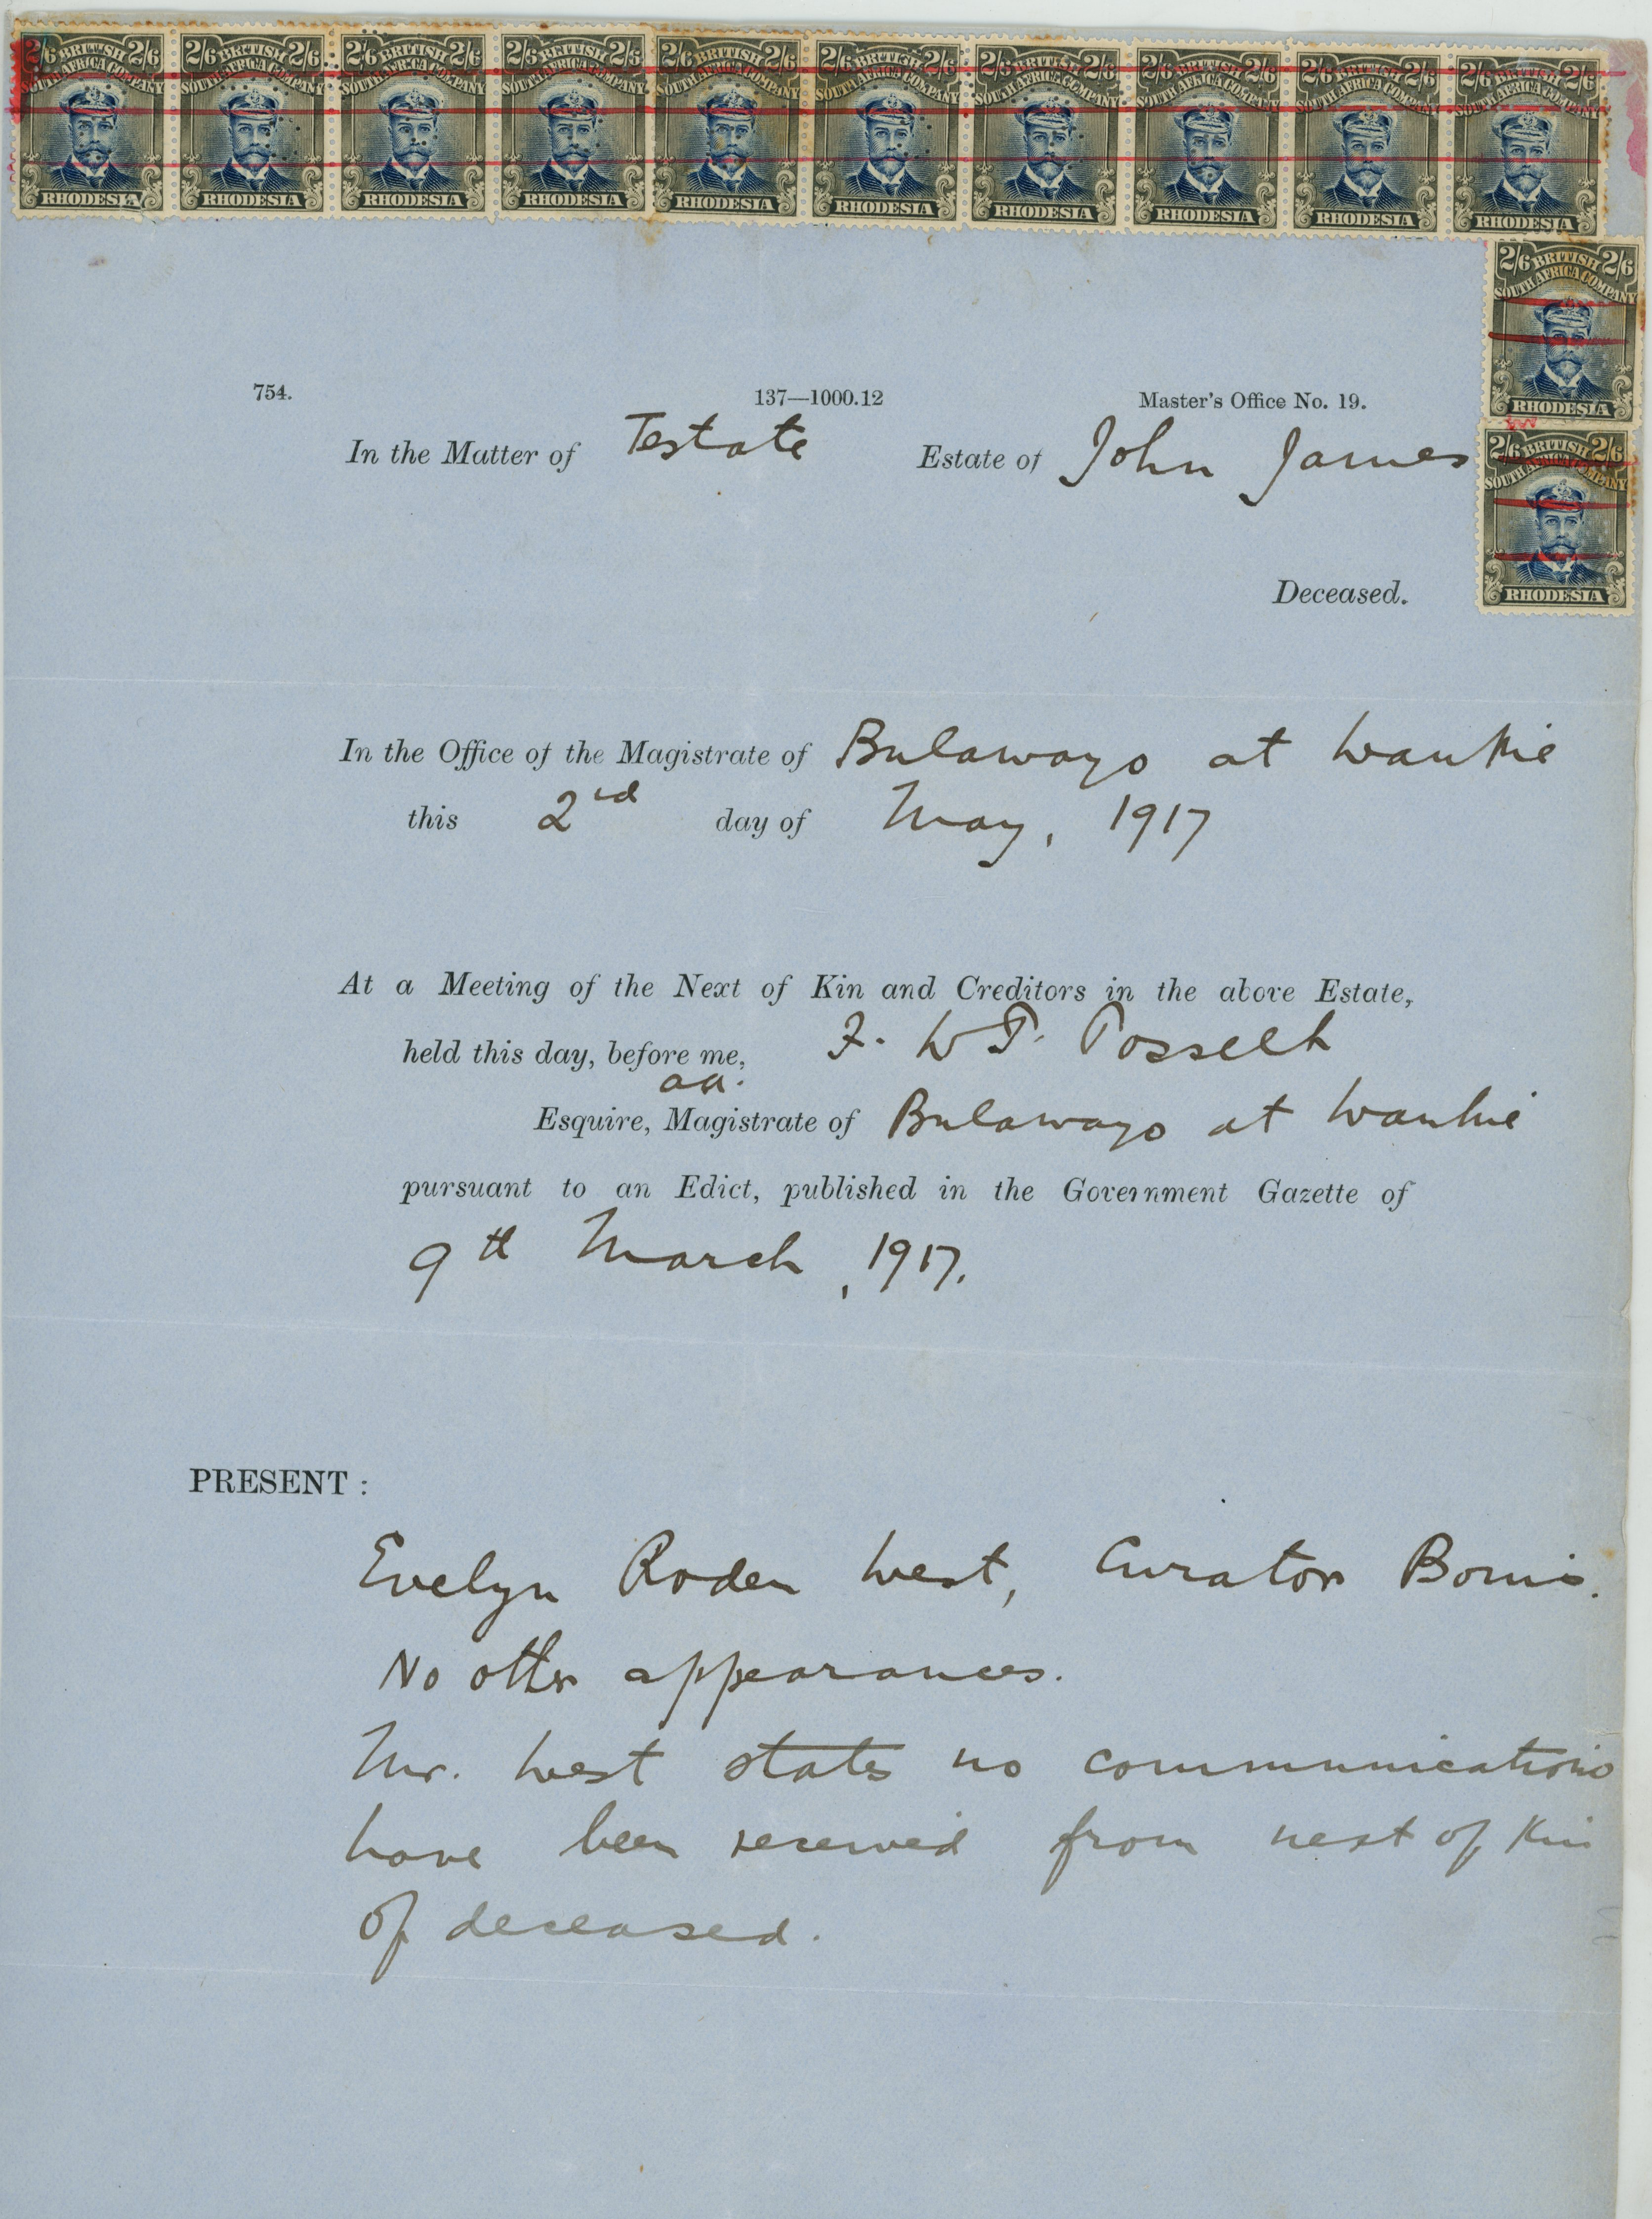 2/6 BRITISH 2/6 2/6 BRITISH 2/6 2/6 BRITISH 2/6 2/6 BRITISH 2/6 2/6 BRITISH 2/6 2/6 BRITISH 2/6 2/6 BRITISH 2/6 2/6 BRITISH 2/6 2/6 BRITISH 2/6 2/6 BRITISH 2/6
SOUTH AFRICA COMPANY SOUTH AFRICA COMPANY SOUTH AFRICA COMPANY SOUTH AFRICA COMPANY SOUTH AFRICA COMPANY SOUTH AFRICA COMPANY SOUTH AFRICA COMPANY SOUTH AFRICA COMPANY SOUTH AFRICA COMPANY SOUTH AFRICA COMPANY
RHODESIA RHODESIA RHODESIA RHODESIA RHODESIA RHODESIA RHODESIA RHODESIA RHODESIA RHODESIA
2/6 BRITISH 2/6
SOUTH AFRICA COMPANY
RHODESIA
754. 137—1000.12 Master's Office No. 19.
2/6 BRITISH 2/6
SOUTH AFRICA COMPANY
RHODESIA
In the Matter of Testate Estate of John James
Deceased.
In the Office of the Magistrate of Bulawayo at Wankie
this 2nd day of May, 1917
At a Meeting of the Next of Kin and Creditors in the above Estate,
held this day, before me, F. W T. Posselt
aa.
Esquire, Magistrate of Bulawayo at Wankie
pursuant to an Edict, published in the Government Gazette of
9th March, 1917.
PRESENT :
Evelyn Roden West, Curator Bonis.
No other appearances.
Mr. West states no communications
have been received from next of Kin
of deceased.